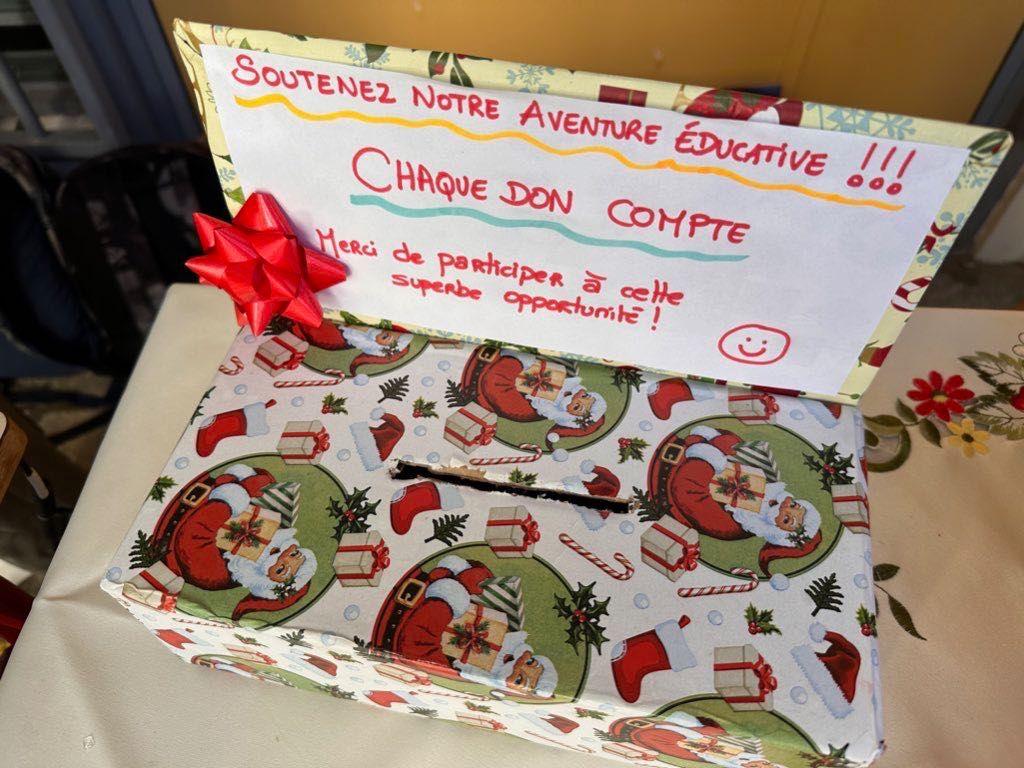 SOUTENEZ NOTRE AVENTURE ÉDUCATIVE !!!
CHAQUE DON COMPTE
Merci de participer à cette
superbe opportunité !